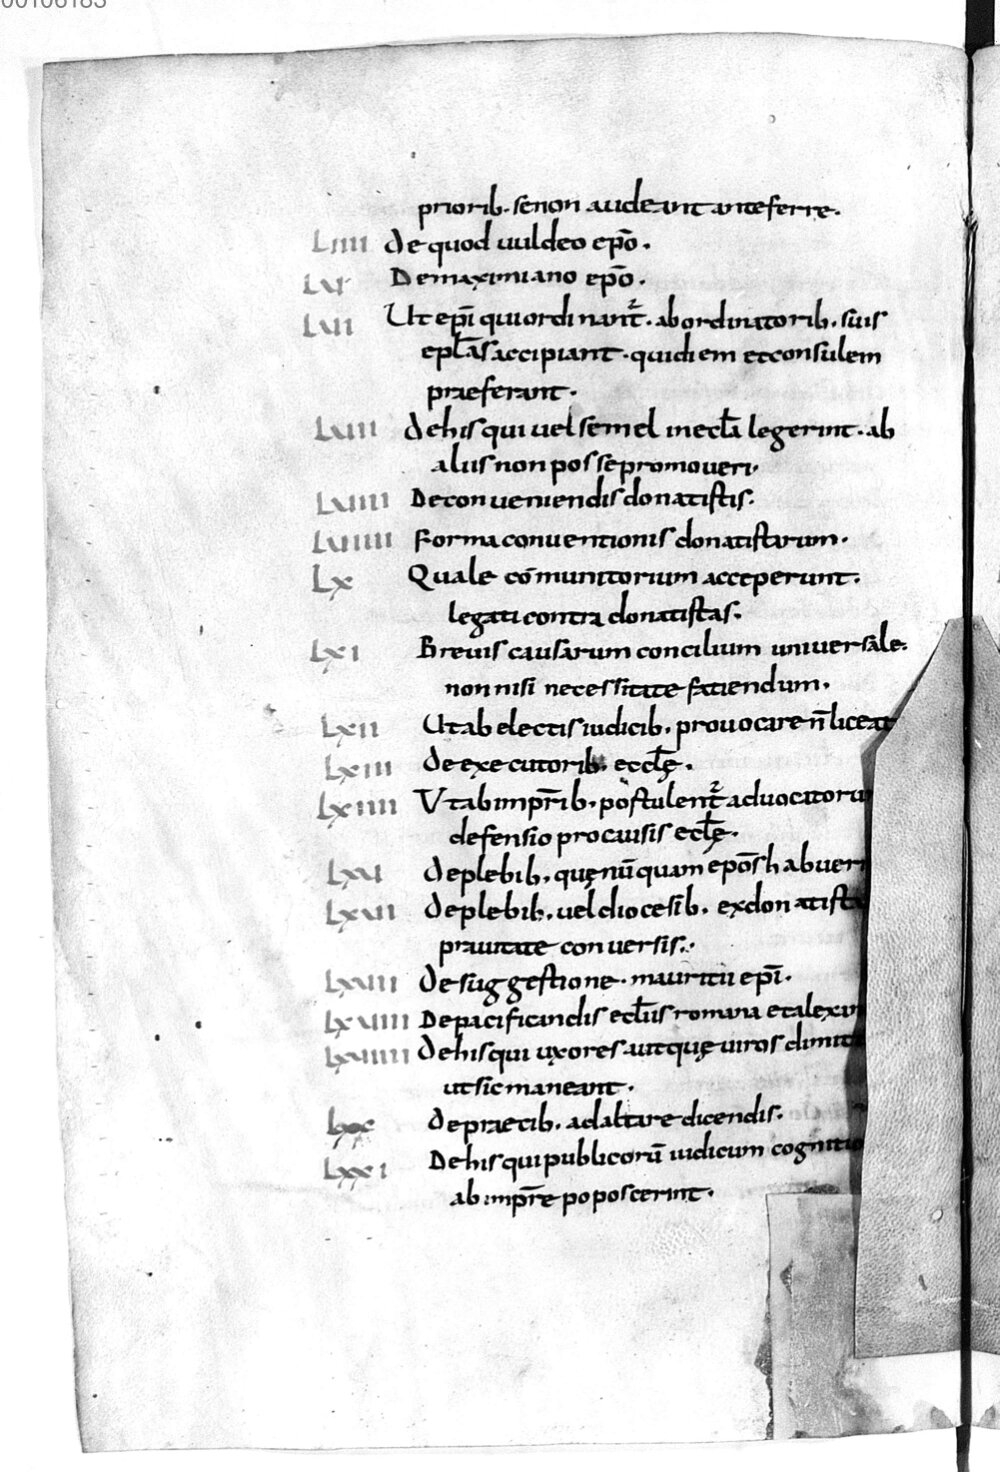 priorib. se non audeant anteferre.
LIIII de quod uuldeo ep̄o.
LVI De maximiano ep̄o.
LVII Ut ep̄i qui ordinant̄. ab ordinatorib. suis
epl̄as accipiant. qui diem et consulem
praeferant.
LVIII de his qui uel semel in eccl̄a legerint. ab
aliis non posse promoueri.
LVIIII De conueniendis donatistis.
LVIIIII Forma conuentionis donatistarum.
LX Quale cōmunitorium acceperunt.
legati contra donatistas.
LXI Breuis causarum concilium uniuersale.
non nisi necessitate fatiendum.
LXII Ut ab electis iudicib. prouocare n̄ liceat
LXIII de executorib. eccl̄ę.
LXIIII Ut ab impr̄ib. postulent̄ aduocatorū
defensio pro causis eccl̄ę.
LXVI de plebib. quę nūquam ep̄os habuer
LXVII de plebib. uel diocesib. ex donatista
prauitate conuersis.
LXVIII de suggestione. mauritii ep̄i.
LXVIIII De pacificandis eccl̄iis romana et alexan
LXVIIII de his qui uxores aut quę uiros dimitt
ut sic maneant.
LXX de praecib. ad altare dicendis.
LXXI De his qui publicorū iudicum cognitio
ab impr̄e poposcerint.